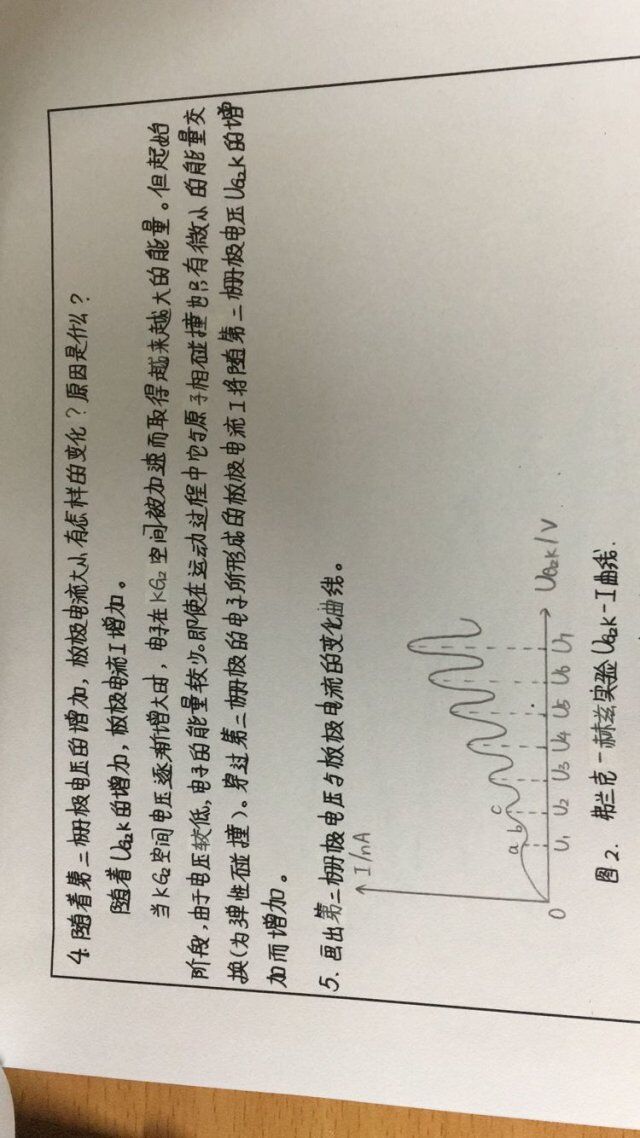 4. 随着第二栅极电压的增加，板极电流大小有怎样的变化？原因是什么？
随着 UG2K 的增加，板极电流I增加。
当KG2空间电压逐渐增大时，电子在KG2空间被加速而取得越来越大的能量。但起始
阶段，由于电压较低，电子的能量较少。即使在运动过程中它与原子相碰撞也只有微小的能量交
换(为弹性碰撞)。穿过第二栅极的电子所形成的板极电流I将随第二栅极电压UG2K的增
加而增加。
5. 画出第二栅极电压与板极电流的变化曲线。
I/nA
a b c
O U1 U2 U3 U4 U5 U6 U7 UG2K/V
图2. 弗兰克-赫兹实验UG2K-I曲线.